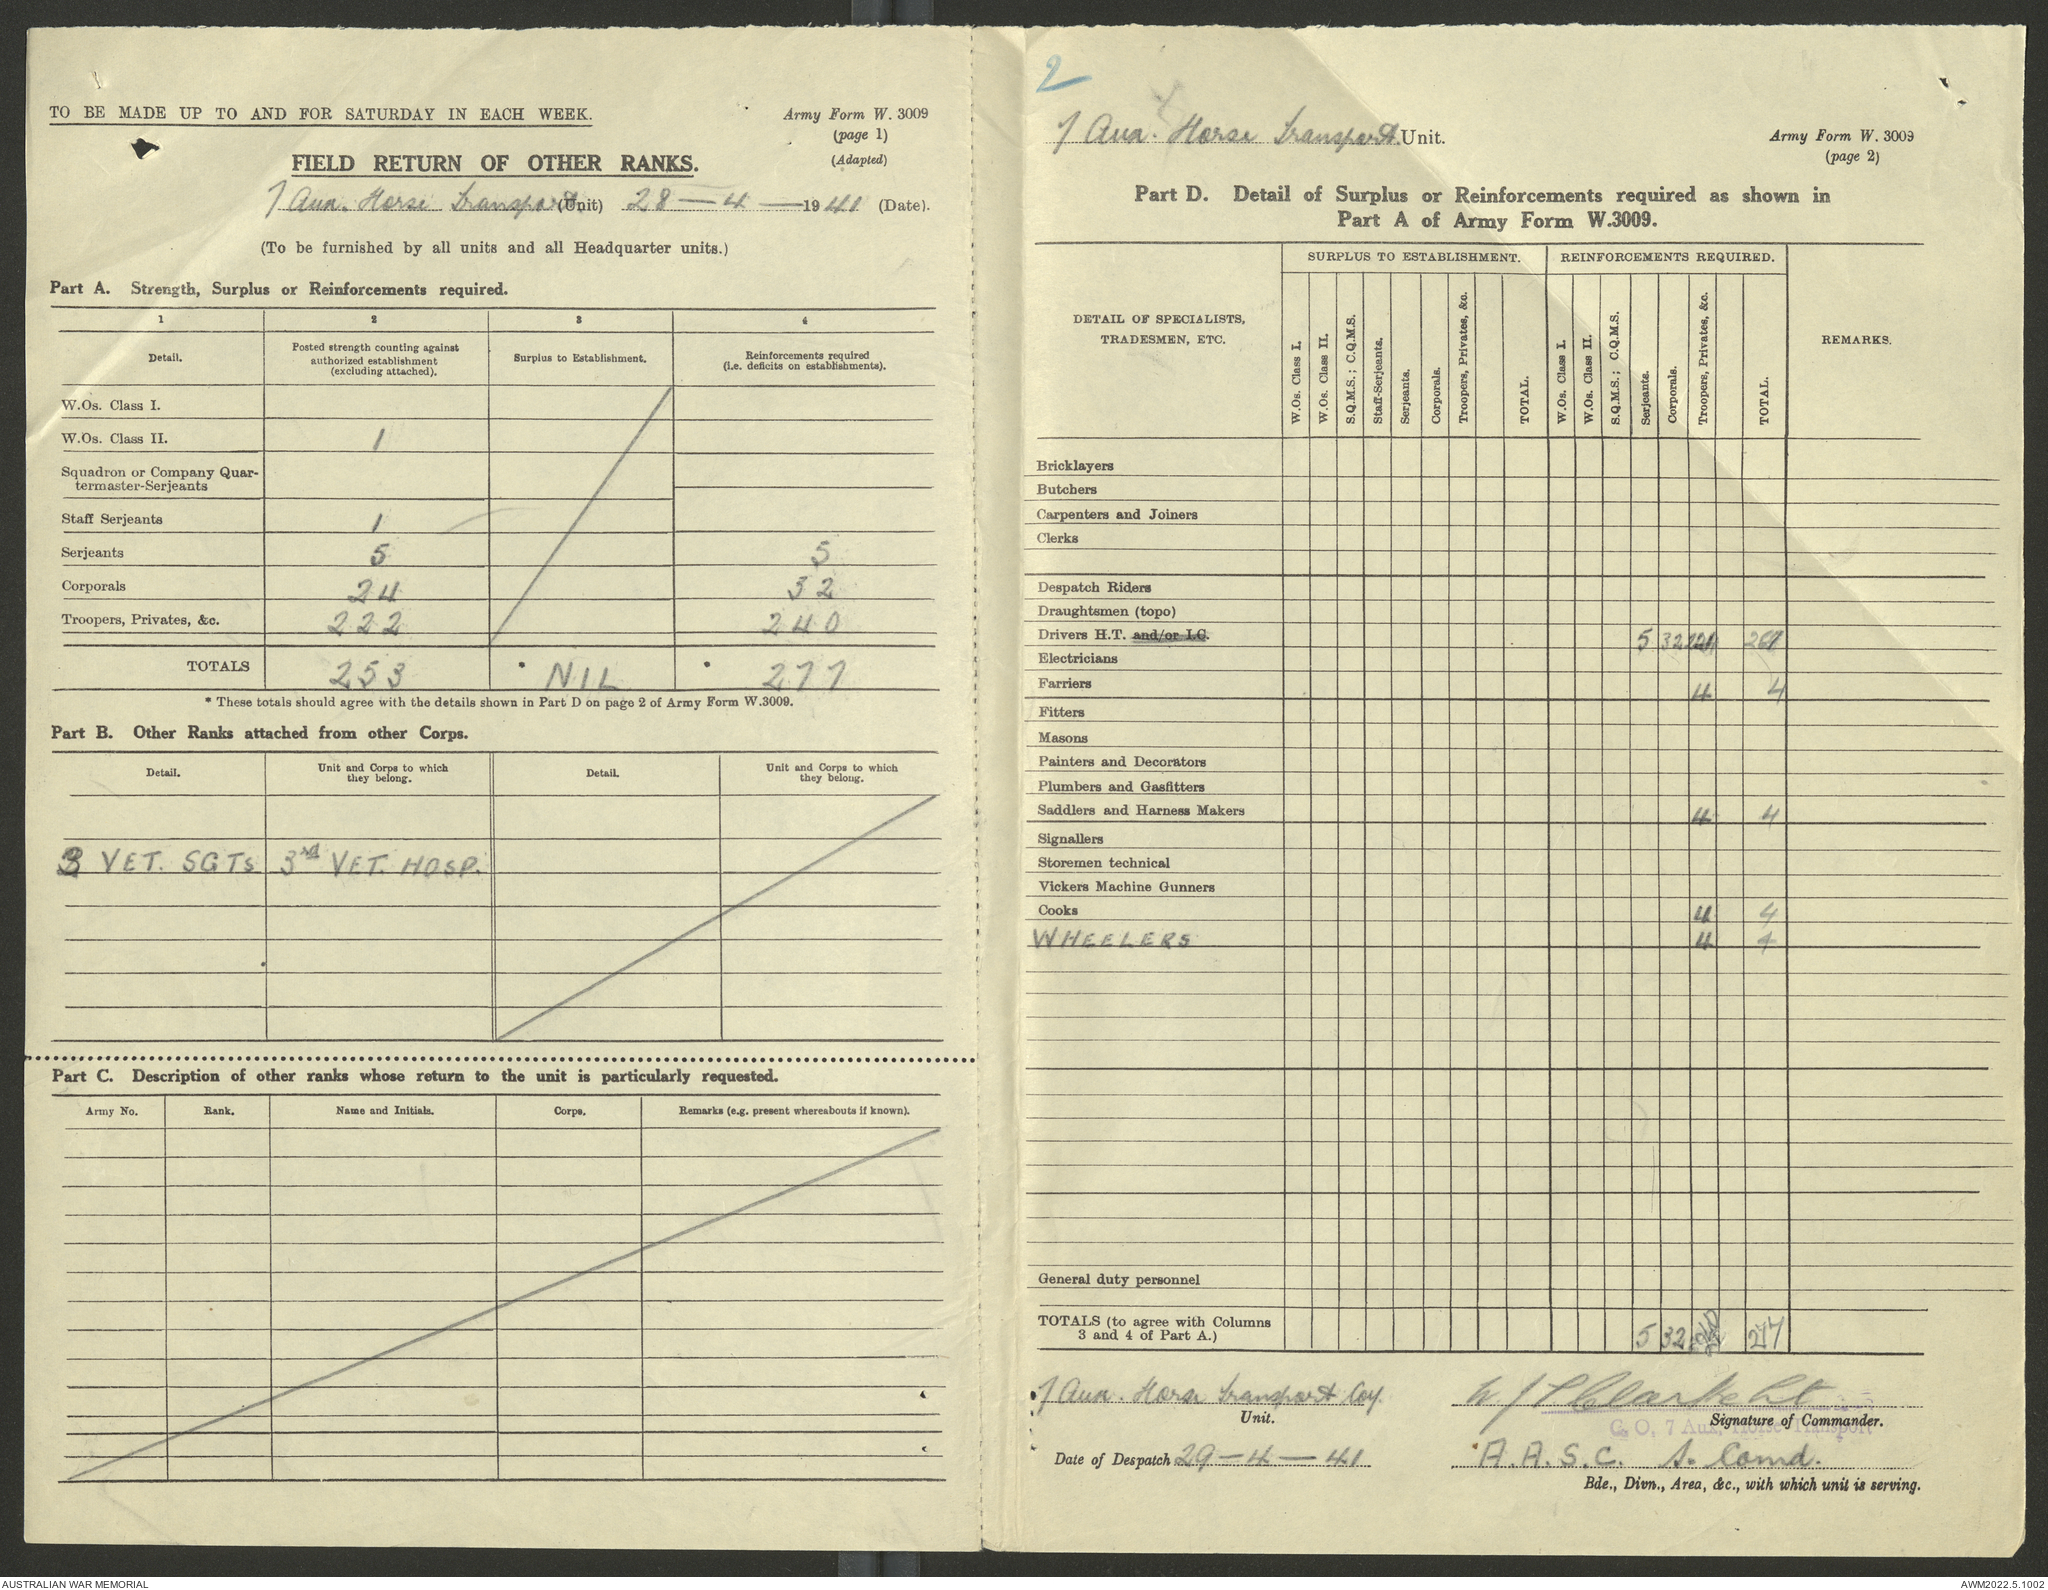 TO BE MADE UP TO AND FOR SATURDAY IN EACH WEEK.
Army Form W. 3009
(page 1)
(Adapted)
FIELD RETURN OF OTHER RANKS.
7 Aux. Horse Transport (Unit) 28-4-1941 (Date).
(To be furnished by all units and all Headquarter units.)
Part A. Strength, Surplus or Reinforcements required.
1 2 3 4
Detail. Posted strength counting against authorized establishment (excluding attached). Surplus to Establishment. Reinforcements required (i.e. deficits on establishments).
W.Os. Class I.
W.Os. Class II. 1
Squadron or Company Quar-
termaster-Serjeants
Staff Serjeants 1
Serjeants 5 5
Corporals 24 32
Troopers, Privates, &c. 222 240
TOTALS 253 * NIL * 277
* These totals should agree with the details shown in Part D on page 2 of Army Form W.3009.
Part B. Other Ranks attached from other Corps.
Detail. Unit and Corps to which they belong. Detail. Unit and Corps to which they belong.
3 VET. SGTS 3rd VET. HOSP.
Part C. Description of other ranks whose return to the unit is particularly requested.
Army No. Rank. Name and Initials. Corps. Remarks (e.g. present whereabouts if known).
2
7 Aux. Horse Transport Unit.
Army Form W. 3009
(page 2)
Part D. Detail of Surplus or Reinforcements required as shown in
Part A of Army Form W.3009.
SURPLUS TO ESTABLISHMENT. REINFORCEMENTS REQUIRED.
DETAIL OF SPECIALISTS,
TRADESMEN, ETC.
W.Os. Class I. W.Os. Class II. S.Q.M.S.; C.Q.M.S. Staff-Serjeants. Serjeants. Corporals. Troopers, Privates, &c. TOTAL. W.Os. Class I. W.Os. Class II. S.Q.M.S.; C.Q.M.S. Serjeants. Corporals. Troopers, Privates, &c. TOTAL. REMARKS.
Bricklayers
Butchers
Carpenters and Joiners
Clerks
Despatch Riders
Draughtsmen (topo)
Drivers H.T. and/or I.C. 5 32 261
Electricians
Farriers 4 4
Fitters
Masons
Painters and Decorators
Plumbers and Gasfitters
Saddlers and Harness Makers 4 4
Signallers
Storemen technical
Vickers Machine Gunners
Cooks 4 4
WHEELERS 4 4
General duty personnel
TOTALS (to agree with Columns
3 and 4 of Part A.) 5 32 240 277
7 Aux. Horse Transport Coy.
Unit.
Signature of Commander.
C. O, 7 Aux. Horse Transport
Date of Despatch 29-4-41
A.A.S.C. S. Comd.
Bde., Divn., Area, &c., with which unit is serving.
AUSTRALIAN WAR MEMORIAL
AWM2022.5.1002